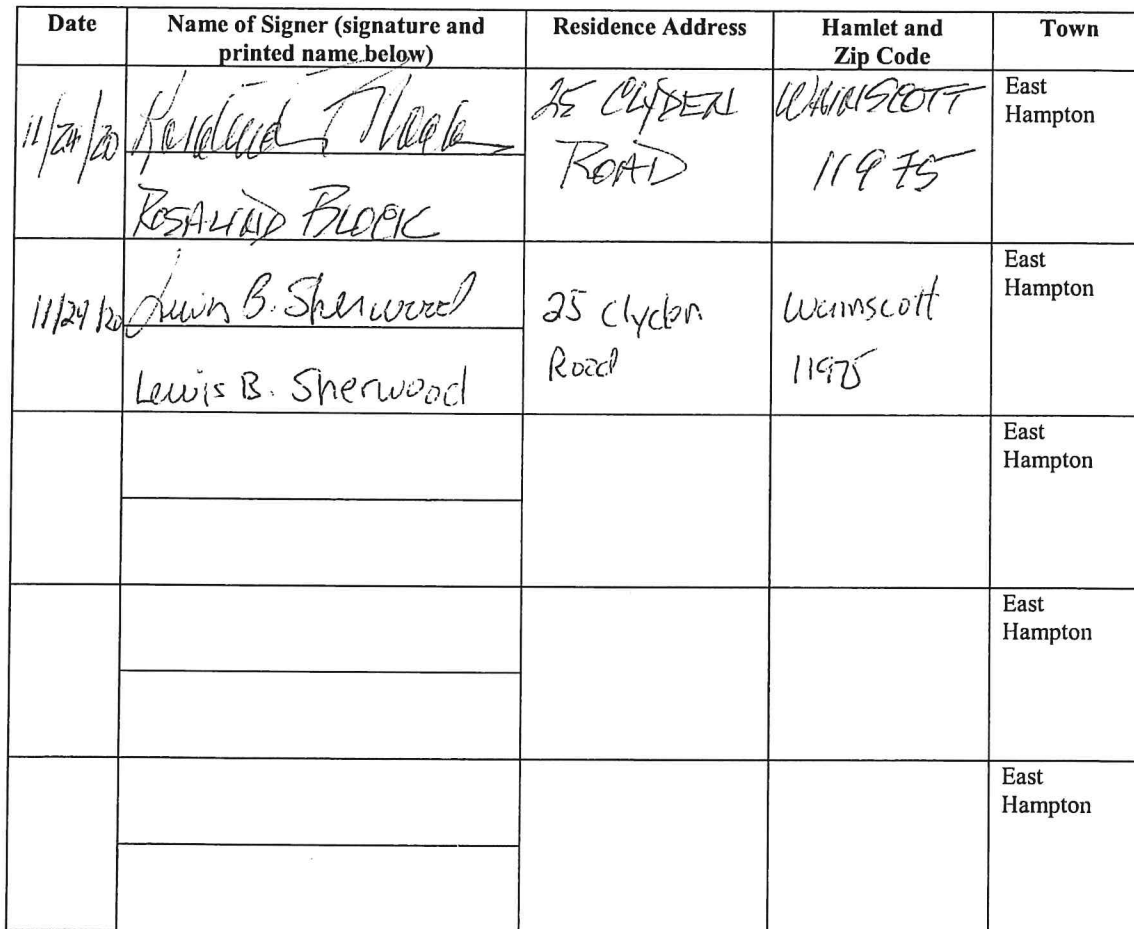 Date
Name of Signer (signature and
printed name below)
Residence Address
Hamlet and
Zip Code
Town
11/24/20
ROSALIND BLOCK
25 CLYDEN
ROAD
WAINSCOTT
11975
East
Hampton
11/24/20
Lewis B. Sherwood
Lewis B. Sherwood
25 Clyden
Road
Wainscott
11975
East
Hampton
East
Hampton
East
Hampton
East
Hampton